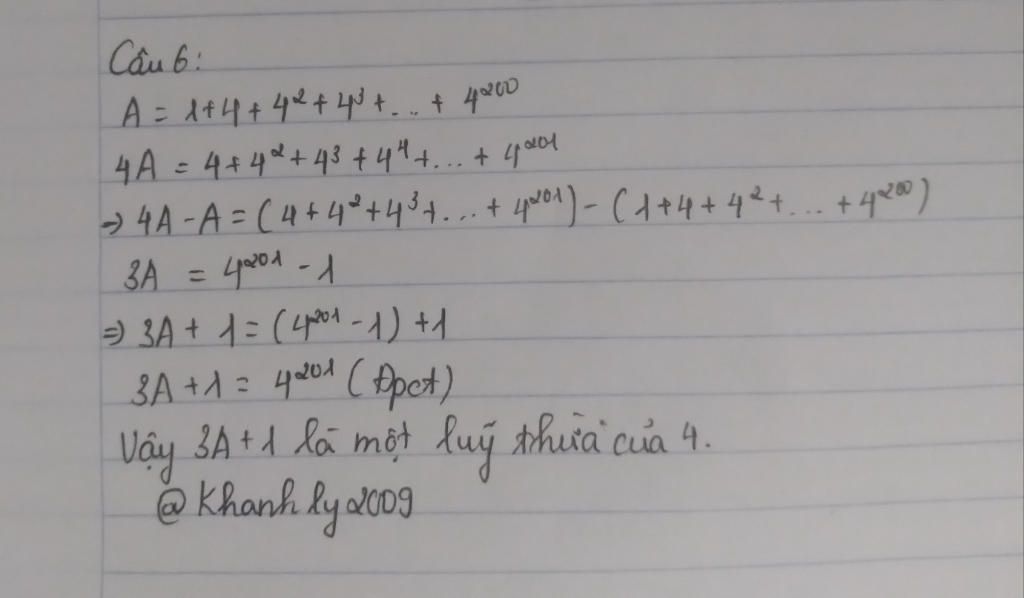 Câu 6:
A = 1 + 4 + 4² + 4³ + ... + 4²⁰⁰
4A = 4 + 4² + 4³ + 4⁴ + ... + 4²⁰¹
⇒ 4A - A = (4 + 4² + 4³ + ... + 4²⁰¹) - (1 + 4 + 4² + ... + 4²⁰⁰)
3A = 4²⁰¹ - 1
⇒ 3A + 1 = (4²⁰¹ - 1) + 1
3A + 1 = 4²⁰¹ (Đpct)
Vậy 3A + 1 là một luỹ thừa của 4.
@Khanhly2009